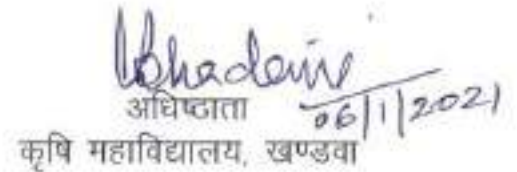 अधिष्ठाता
06/1/2021
कृषि महाविद्यालय, खण्डवा